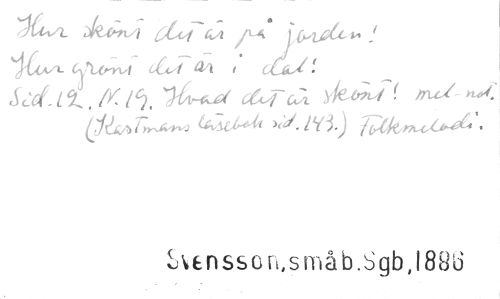 Hur skönt det är på jorden!
Hur grönt det är i dal!
Sid. 12. N. 19. Hvad det är skönt! mel-not.
(Kastmans läsebok sid. 143.) Folkmelodi.
Svensson, småb. Sgb, 1886